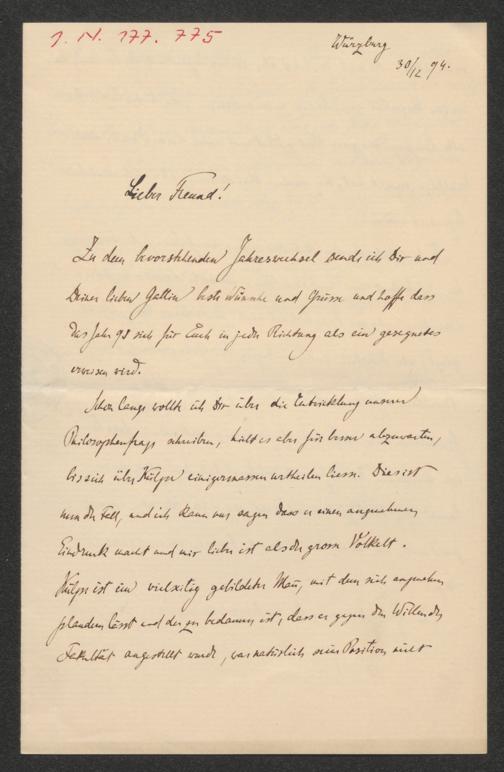 J. N. 177. 775
Würzburg
30/12 94.
Lieber Freund!
Zu dem bevorstehenden Jahreswechsel sende ich Dir und
Deiner lieben Gattin beste Wünsche und Grüsse und hoffe dass
das Jahr 95 sich für Euch in jeder Richtung als ein gesegnetes
erweisen wird.
Schon lange wollte ich Dir über die Entwicklung unserer
Philosophenfrage schreiben, hielt es aber für besser abzuwarten,
bis sich über Külpe einigermassen urtheilen liesse. Dies ist
nun der Fall, und ich kann nur sagen dass er einen angenehmen
Eindruck macht und mir lieber ist als der grosse Volkelt.
Külpe ist ein vielseitig gebildeter Mann, mit dem sich angenehm
plaudern lässt und der zu bedauern ist, dass er gegen den Willen der
Fakultät angestellt wurde, was natürlich seine Position nicht